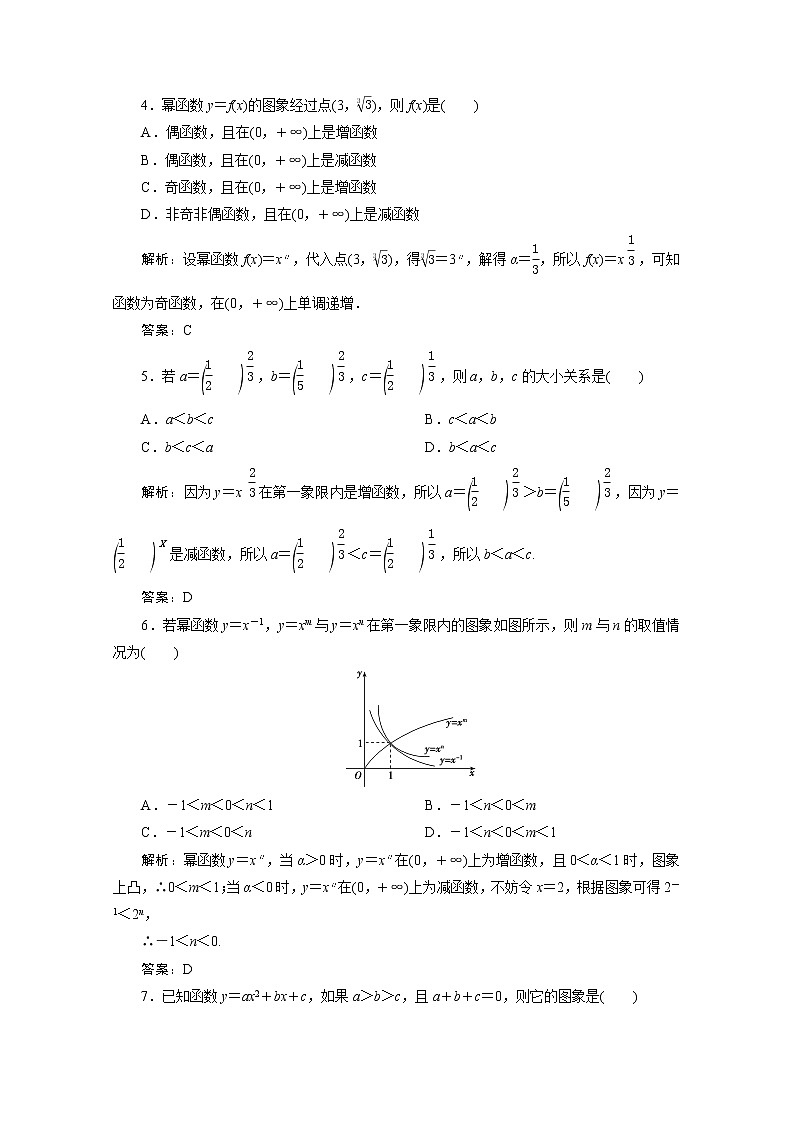 4．幂函数 y＝f(x)的图象经过点(3，∛3)，则 f(x)是(　　)
A．偶函数，且在(0，＋∞)上是增函数
B．偶函数，且在(0，＋∞)上是减函数
C．奇函数，且在(0，＋∞)上是增函数
D．非奇非偶函数，且在(0，＋∞)上是减函数
解析：设幂函数 f(x)＝x^α，代入点(3，∛3)，得∛3＝3^α，解得 α＝1/3，所以 f(x)＝x^(1/3)，可知
函数为奇函数，在(0，＋∞)上单调递增．
答案：C
5．若 a＝(1/2)^(2/3)，b＝(1/5)^(2/3)，c＝(1/2)^(1/3)，则 a，b，c 的大小关系是(　　)
A．a＜b＜c　　B．c＜a＜b
C．b＜c＜a　　D．b＜a＜c
解析：因为 y＝x^(2/3)在第一象限内是增函数，所以 a＝(1/2)^(2/3)＞b＝(1/5)^(2/3)，因为 y＝
(1/2)^x是减函数，所以 a＝(1/2)^(2/3)＜c＝(1/2)^(1/3)，所以 b＜a＜c.
答案：D
6．若幂函数 y＝x⁻¹，y＝x^m与 y＝x^n在第一象限内的图象如图所示，则 m 与 n 的取值情
况为(　　)
y
y=x^m
1
y=x^n
y=x⁻¹
O 1 x
A．－1＜m＜0＜n＜1　　B．－1＜n＜0＜m
C．－1＜m＜0＜n　　D．－1＜n＜0＜m＜1
解析：幂函数 y＝x^α，当 α＞0 时，y＝x^α在(0，＋∞)上为增函数，且 0＜α＜1 时，图象
上凸，∴0＜m＜1；当 α＜0 时，y＝x^α在(0，＋∞)上为减函数，不妨令 x＝2，根据图象可得 2⁻
¹＜2^n，
∴－1＜n＜0.
答案：D
7．已知函数 y＝ax²＋bx＋c，如果 a＞b＞c，且 a＋b＋c＝0，则它的图象是(　　)